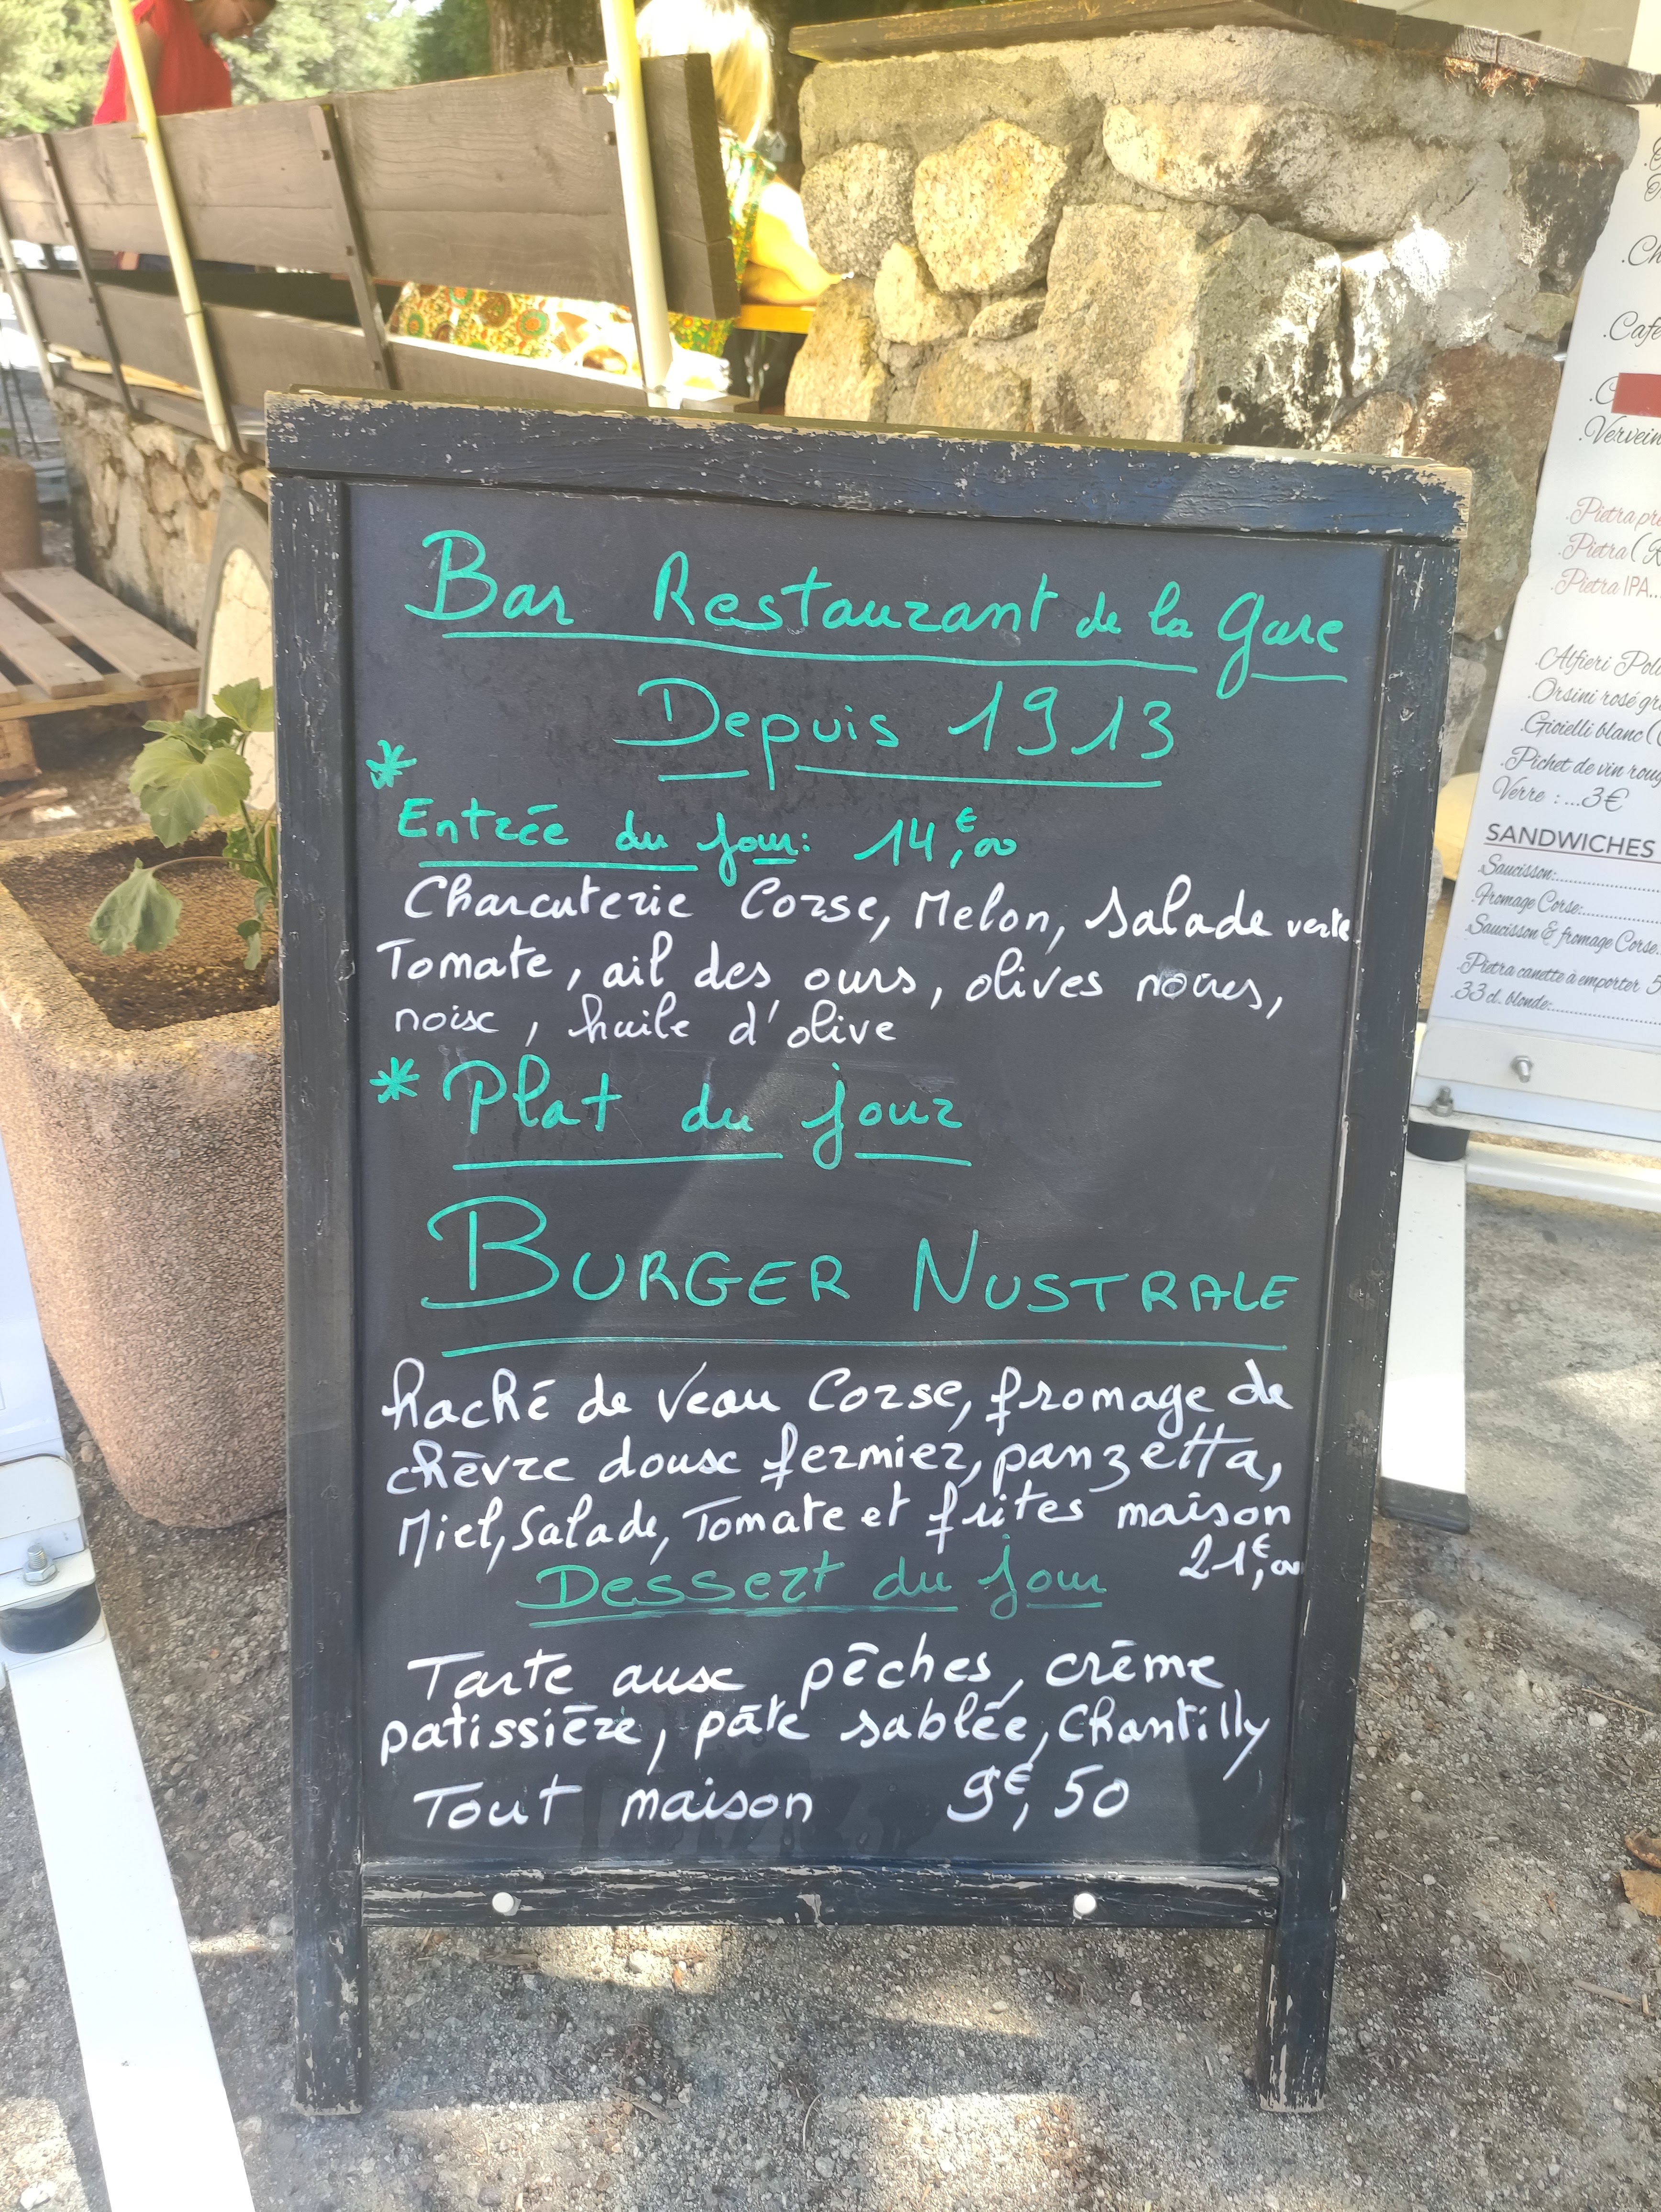 Bar Restaurant de la Gare
Depuis 1913
*
Entrée du Jour: 14€,00
Charcuterie Corse, Melon, Salade verte
Tomate, ail des ours, olives noires,
noix, huile d'olive
* Plat du jour
BURGER NUSTRALE
haché de veau Corse, fromage de
chèvre doux fermier, panzetta,
Miel, Salade, Tomate et frites maison
21€,00
Dessert du jour
Tarte aux pêches, crème
patissière, pâte sablée, Chantilly
Tout maison 9€,50
.Café
.Pietra
.Pietra (
.Pietra IPA...
.Alfieri
.Orsini rosé
.Gioielli blanc (
.Pichet de vin
Verre : ...3€
SANDWICHES
.Saucisson:
.Fromage Corse:
.Saucisson & fromage Corse.
.Pietra canette à emporter 5
.33 cl. blonde: